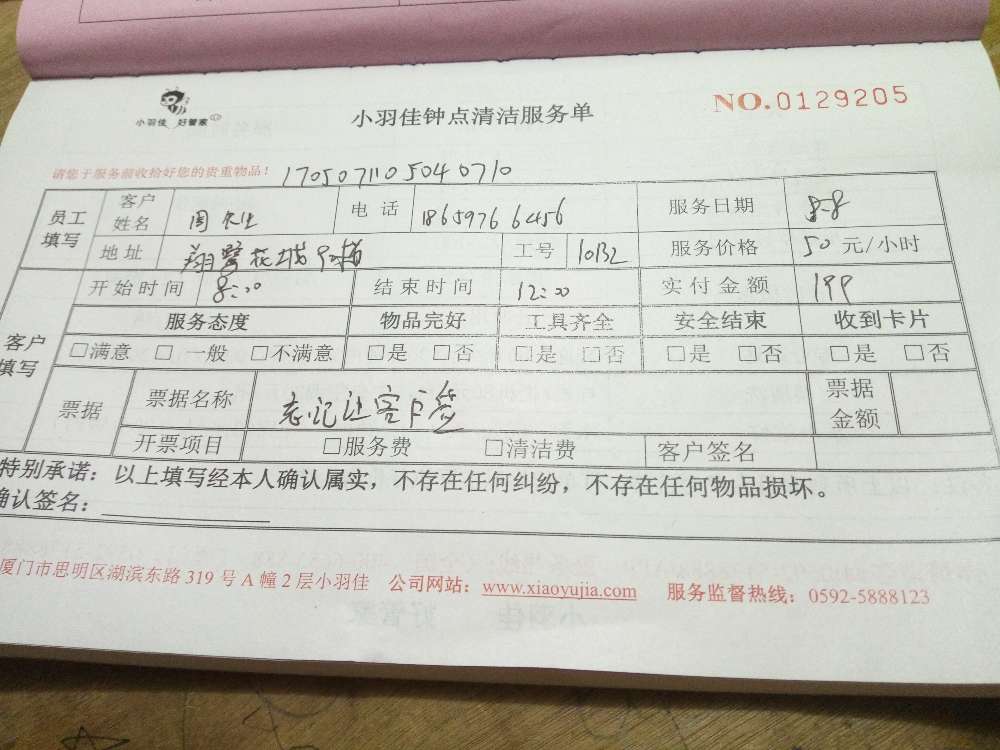 小羽佳 好管家
小羽佳钟点清洁服务单
NO.0129205
请您于服务前收拾好您的贵重物品! 170507110504 0710
员工填写 客户姓名 周 电话 18659766456 服务日期 8-8
地址 翔鹭花城 工号 10132 服务价格 50 元/小时
客户填写 开始时间 8:00 结束时间 12:00 实付金额 199
服务态度 物品完好 工具齐全 安全结束 收到卡片
□满意 □一般 □不满意 □是 □否 □是 □否 □是 □否 □是 □否
票据 票据名称 忘记让客户签 票据金额
开票项目 □服务费 □清洁费 客户签名
特别承诺：以上填写经本人确认属实，不存在任何纠纷，不存在任何物品损坏。
确认签名：
厦门市思明区湖滨东路 319 号 A 幢 2 层小羽佳 公司网站：www.xiaoyujia.com 服务监督热线：0592-5888123